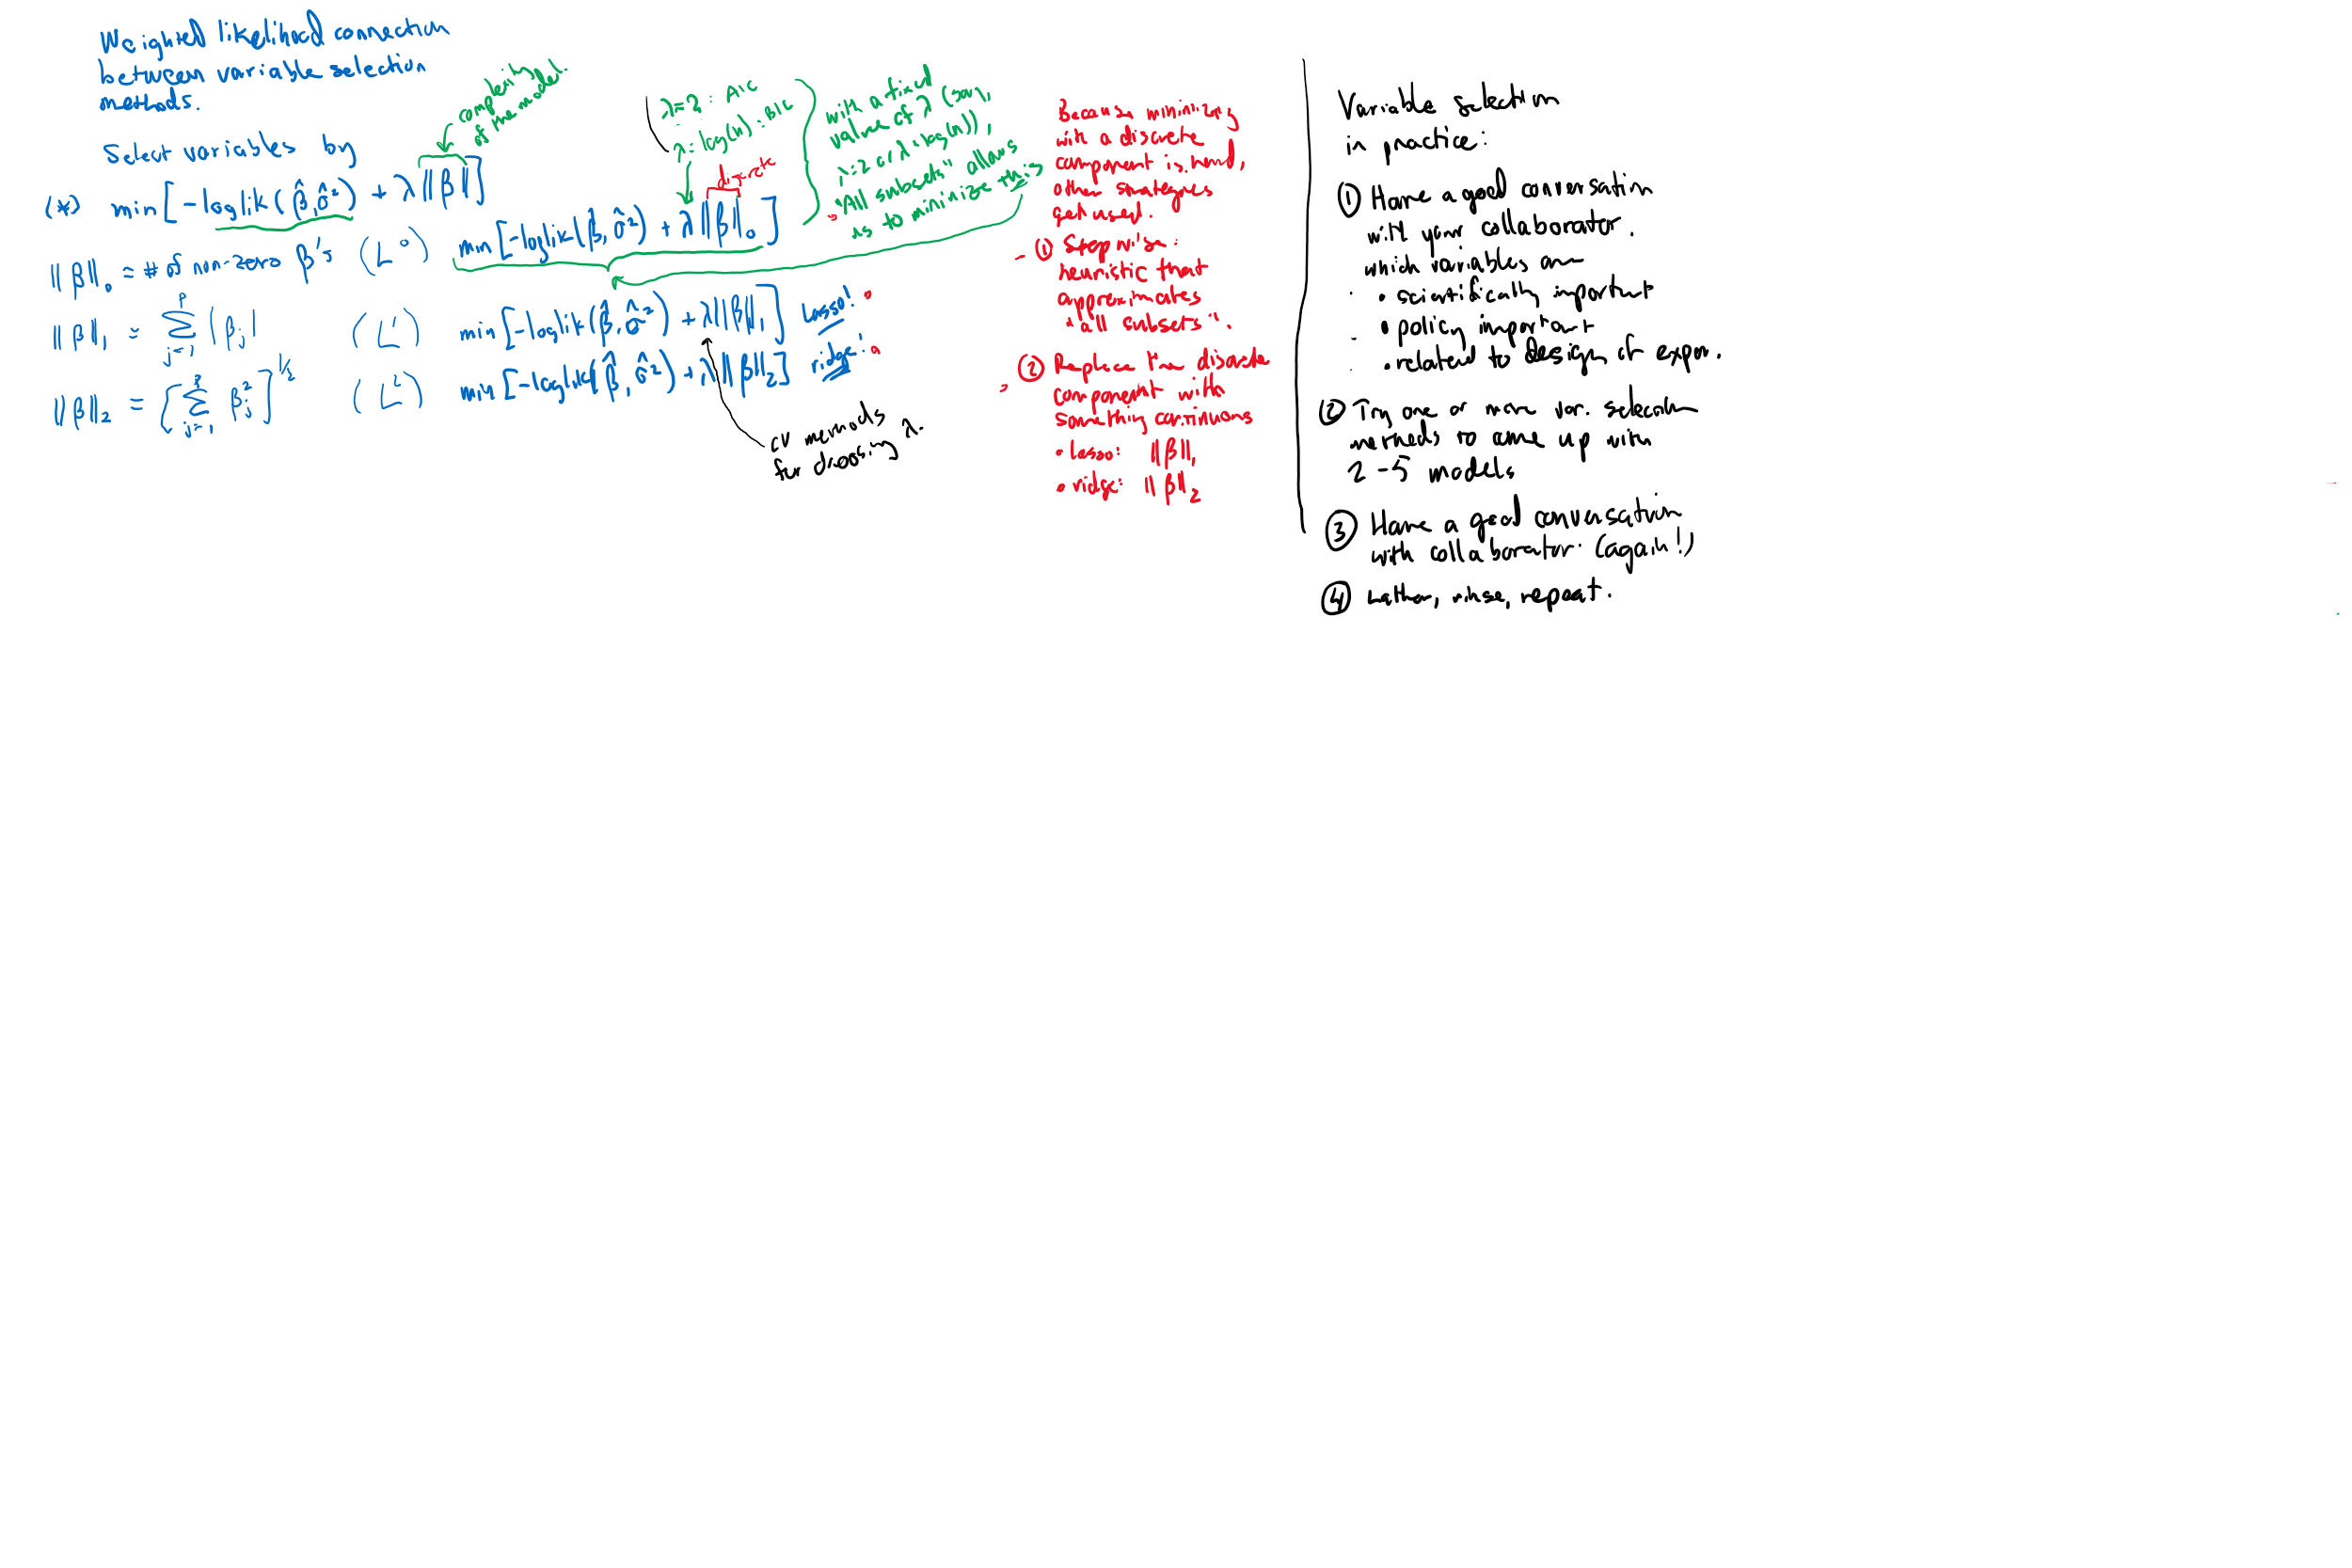 Weighted likelihood connection
between variable selection
methods.
Select variables by
complexity
of the model.
(*) min[-loglik(β̂,σ̂²) + λ||β||]
||β||₀ = # of non-zero β's (L⁰)
||β||₁ = Σ_{j=1}^{p} |βj| (L¹)
||β||₂ = [Σ_{j=1}^{p} βj²]^{1/2} (L²)
λ=2 : AIC
λ=log(n) : BIC
discrete
min[-loglik(β̂,σ̂²) + λ||β||₀]
min[-loglik(β̂,σ̂²) + λ||β||₁] Lasso!
min[-loglik(β̂,σ̂²) + λ||β||₂] ridge!
CV methods
for choosing λ.
with a fixed
value of λ (say,
λ=2 or λ=log(n)),
"All subsets" allows
us to minimize this
Because minimizing
with a discrete
component is hard,
other strategies
get used.
① Stepwise:
heuristic that
approximates
"all subsets".
② Replace the discrete
component with
something continuous
• lasso: ||β||₁
• ridge: ||β||₂
Variable selection
in practice:
① Have a good conversation
with your collaborator.
which variables are
• scientifically important
• policy important
• related to design of exper.
② Try one or more var. selection
methods to come up with
2-5 models
③ Have a good conversation
with collaborator. (again!)
④ Lather, rinse, repeat.